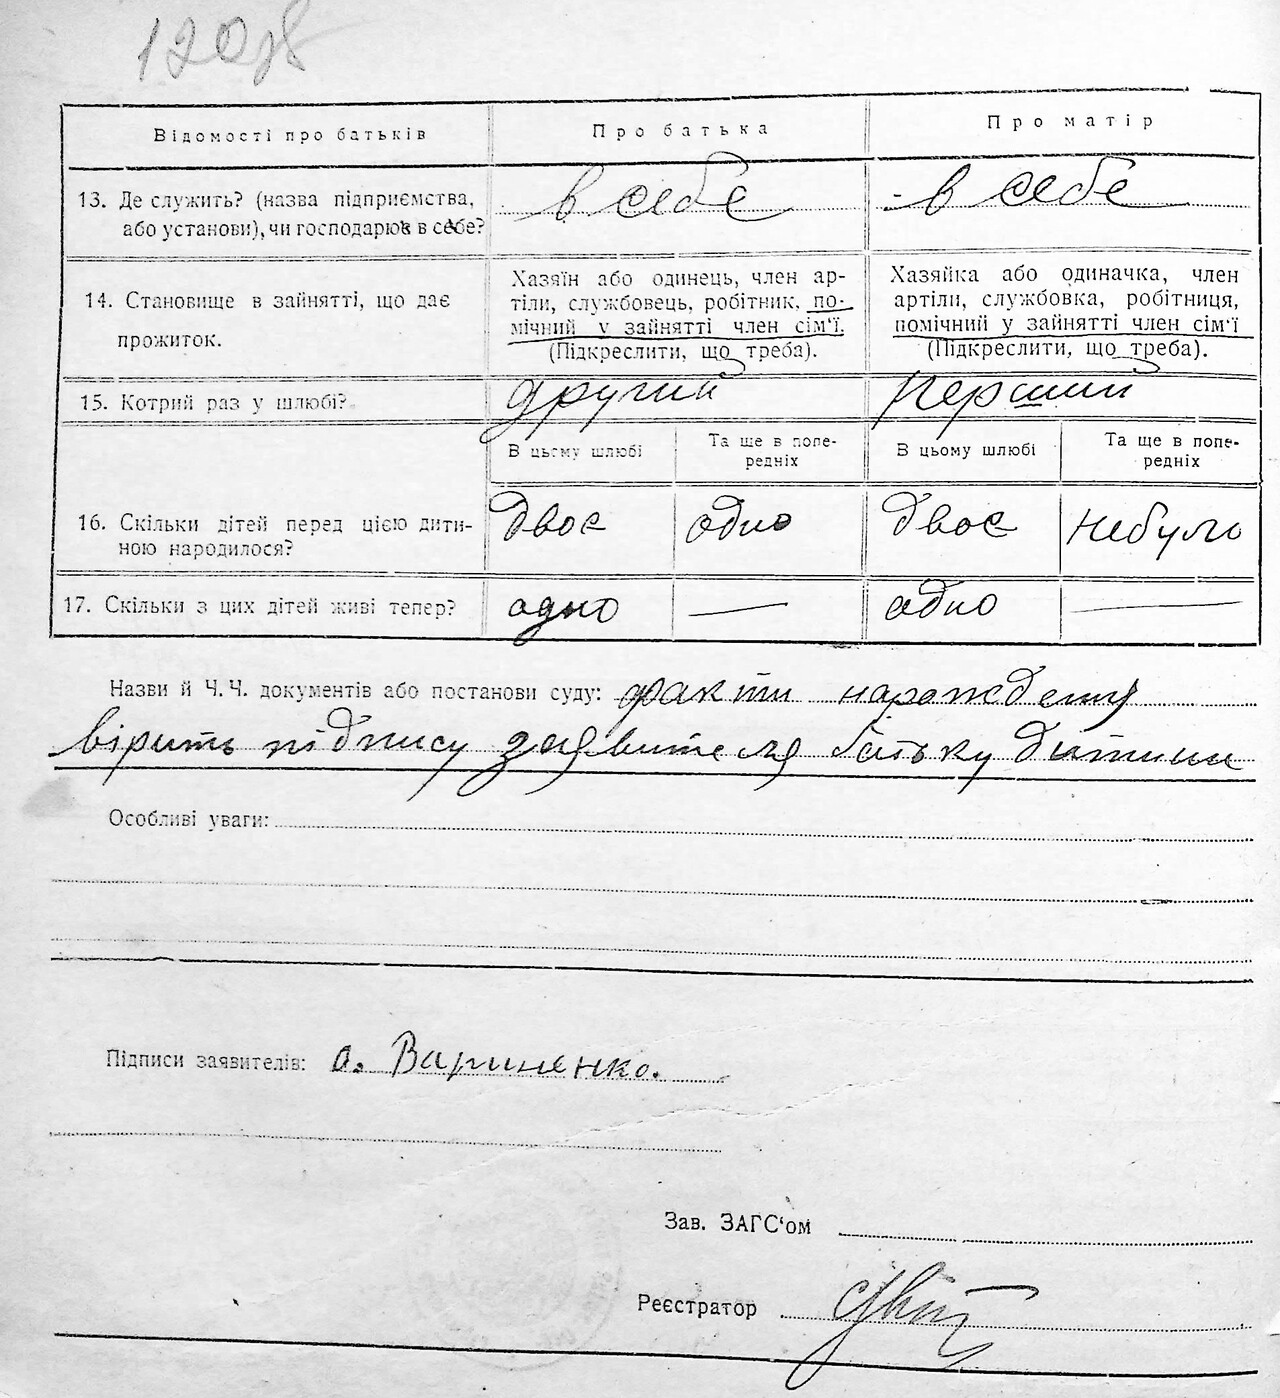 Відомості про батьків
Про батька
Про матір
13. Де служить? (назва підприємства, або установи), чи господарює в себе?
в себе
в себе
14. Становище в зайнятті, що дає прожиток.
Хазяїн або одинець, член ар-
тіли, службовець, робітник, по-
мічний у зайнятті член сім'ї.
(Підкреслити, що треба).
Хазяйка або одиначка, член
артіли, службовка, робітниця,
помічний у зайнятті член сім'ї
(Підкреслити, що треба).
15. Котрий раз у шлюбі?
другий
перший
В цьому шлюбі
Та ще в попе-
редніх
В цьому шлюбі
Та ще в попе-
редніх
16. Скільки дітей перед цією дити-
ною народилося?
двоє
одно
двоє
небуло
17. Скільки з цих дітей живі тепер?
одно
одно
Назви й Ч.Ч. документів або постанови суду: факти
вірить підпису заявителя батьку дитини
Особливі уваги:
Підписи заявителів:
Зав. ЗАГС'ом
Реєстратор